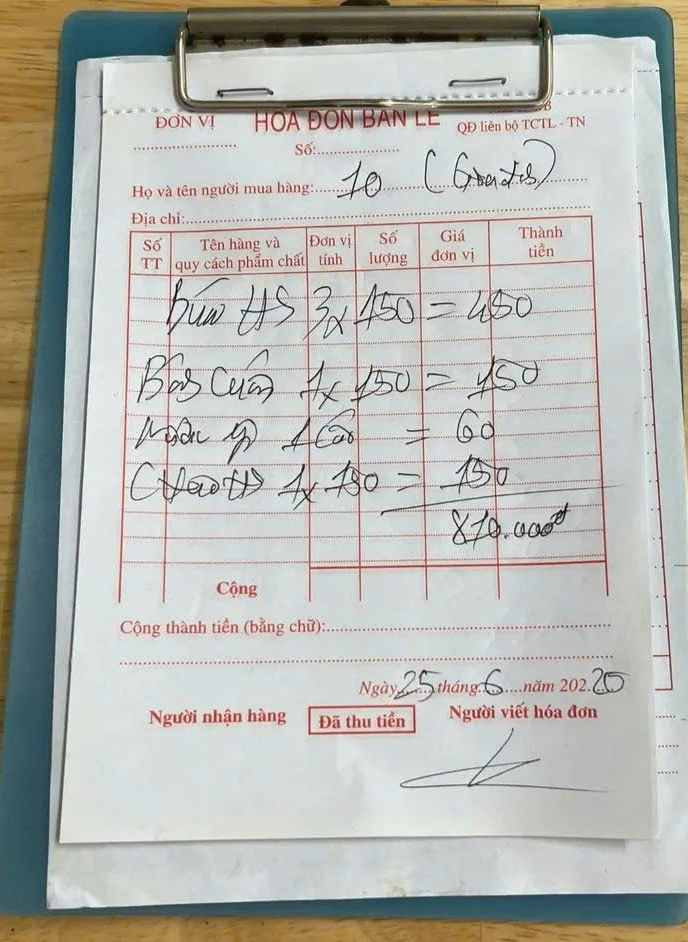 ĐƠN VỊ HÓA ĐƠN BÁN LẺ
QĐ liên bộ TCTL - TN
Số:
Họ và tên người mua hàng: 10
Địa chỉ:
Số TT Tên hàng và quy cách phẩm chất Đơn vị tính Số lượng Giá đơn vị Thành tiền
Bún HS 3 x 150 = 450
Bánh Cuốn 1 x 150 = 150
1 = 60
Cháo HS 1 x 150 = 150
810.000đ
Cộng
Cộng thành tiền (bằng chữ):
Ngày 25 tháng 6 năm 202 20
Người nhận hàng Đã thu tiền Người viết hóa đơn